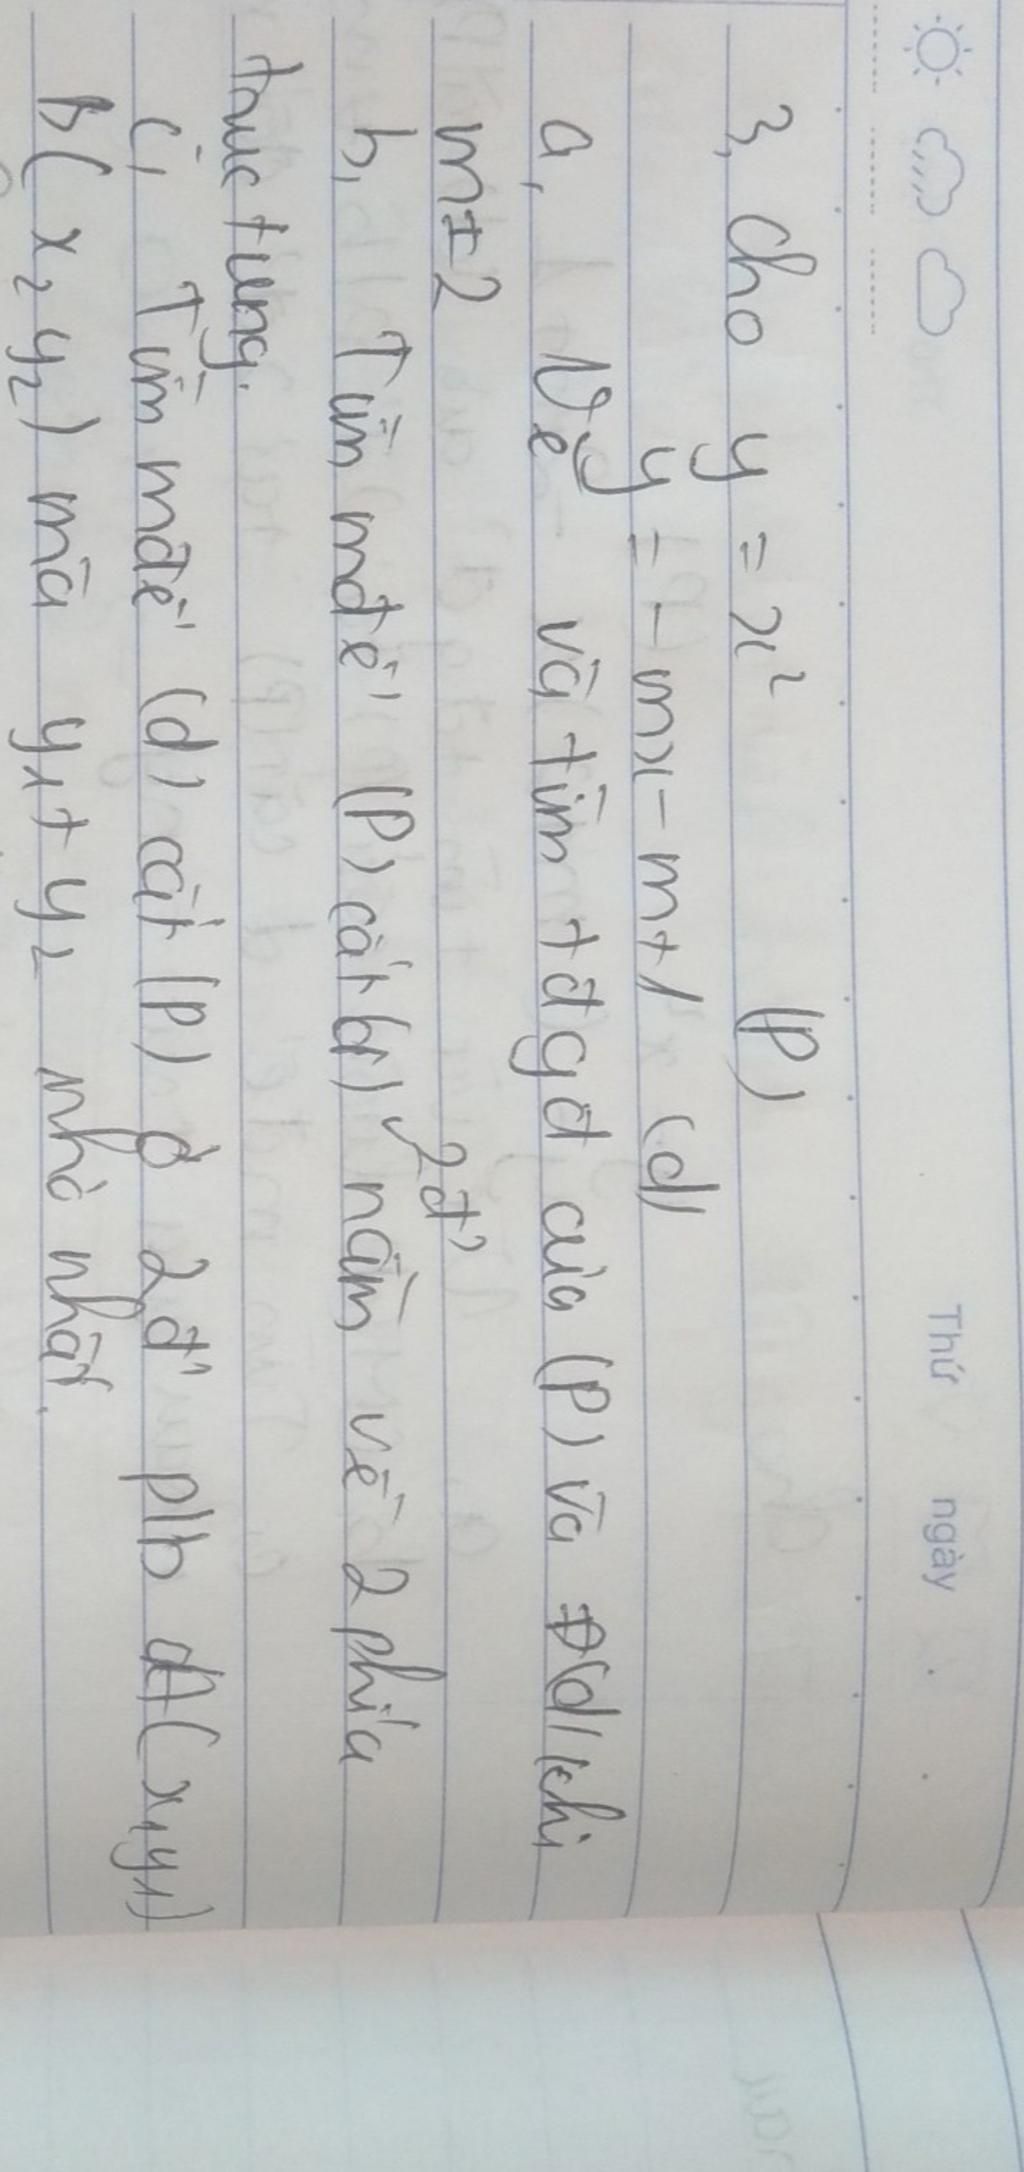 Thứ ngày
3, Cho y = x² (P)
y = - mx - m + 1 (d)
a, Vẽ và tìm tđgđ của (P) và (d) khi
m = 2
b, Tìm m để (P) cắt (d) 2đ' nằm về 2 phía
trục tung.
c, Tìm m để (d) cắt (P) ở 2 đ' plb A(x₁y₁)
B(x₂y₂) mà y₁ + y₂ nhỏ nhất.